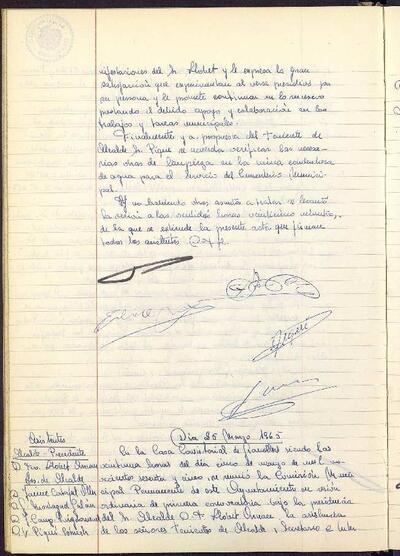 nifestaciones del Sr. Llobet y le expresa la gran
satisfacción que experimentan al verse presididos por
su persona y le promete continuar en lo sucesivo
prestando el debido apoyo y colaboración en los
trabajos y tareas municipales.
Finalmente y a propuesta del Teniente de
Alcalde Sr. Piqué se acuerda verificar las necesa-
rias obras de limpieza en la mina
de agua para el servicio del Cementerio Munici-
pal.
Y no habiendo otros asuntos a tratar se levanta
la sesión a las veintidós horas veinticinco minutos,
de la que se extiende la presente acta que firman
todos los asistentes.
Dia 25 Mayo 1965
Asistentes
Alcalde-Presidente
En la Casa Consistorial de siendo las
Llobet veintiuna horas del día cinco de mayo de mil
cientos sesenta y cinco, se reunió la Comisión Muni-
cipal Permanente de este Ayuntamiento en sesión
ordinaria de primera convocatoria bajo la presidencia
del Sr. Alcalde Llobet la asistencia
Piqué de los señores Tenientes de Alcalde, Secretario e Inter